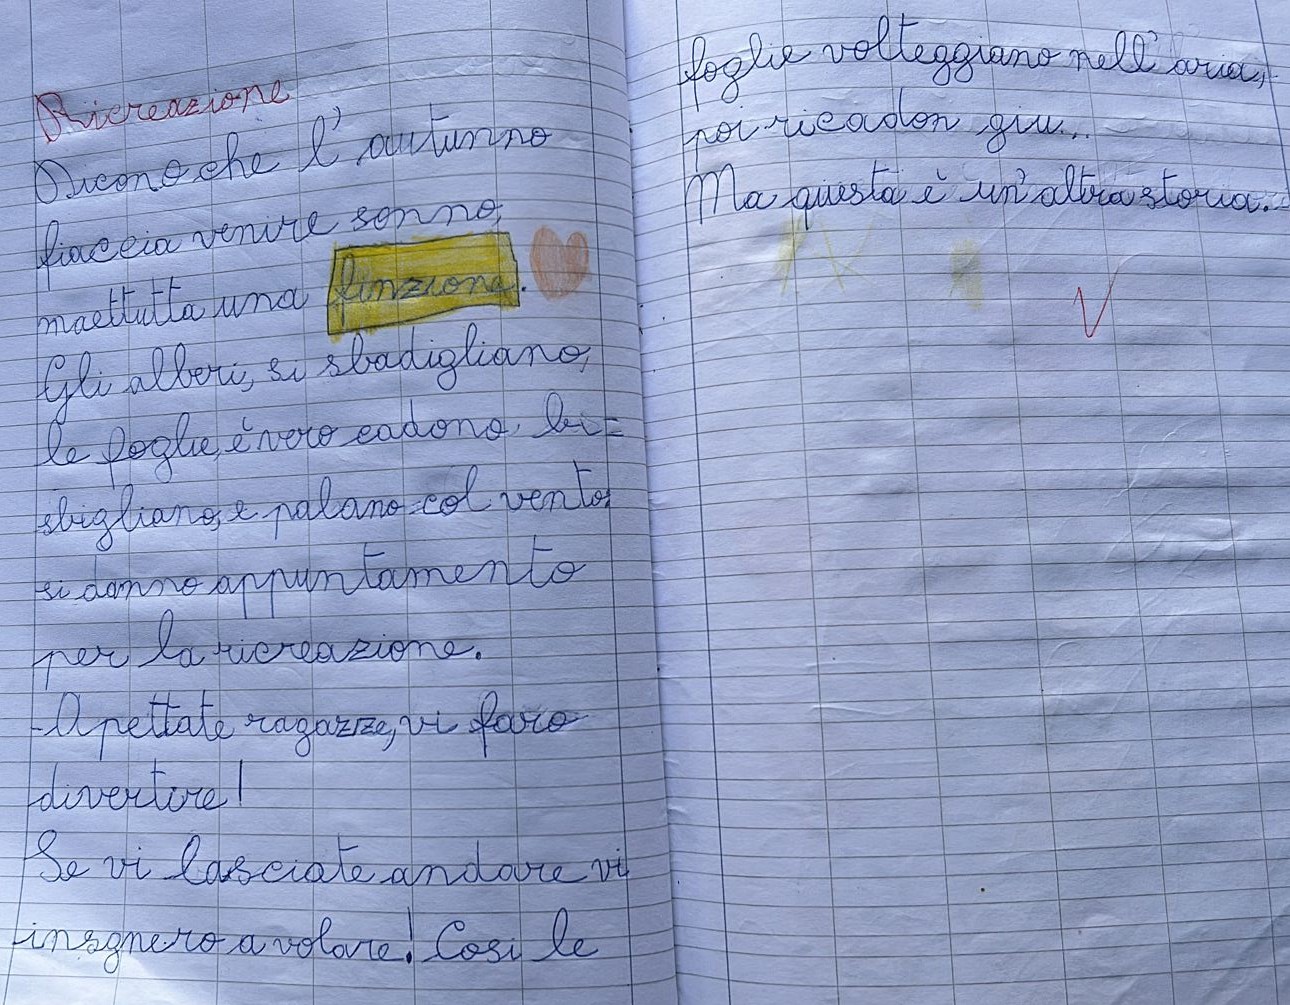 Ricreazione
Dicono che l'autunno
fiaccia venire sonno,
maettutta una finzione.
Gli alberi, si sbadigliano,
le foglie, è vero cadono, bi=
sbigliano, e palano col vento,
si danno appuntamento
per la ricreazione.
-Apettate ragazze, vi faro
divertire!
Se vi lasciate andare vi
insgnero a volare! Cosi le
foglie volteggiano nell'aria,
poi ricadon giu...
Ma questa è un'altra storia.